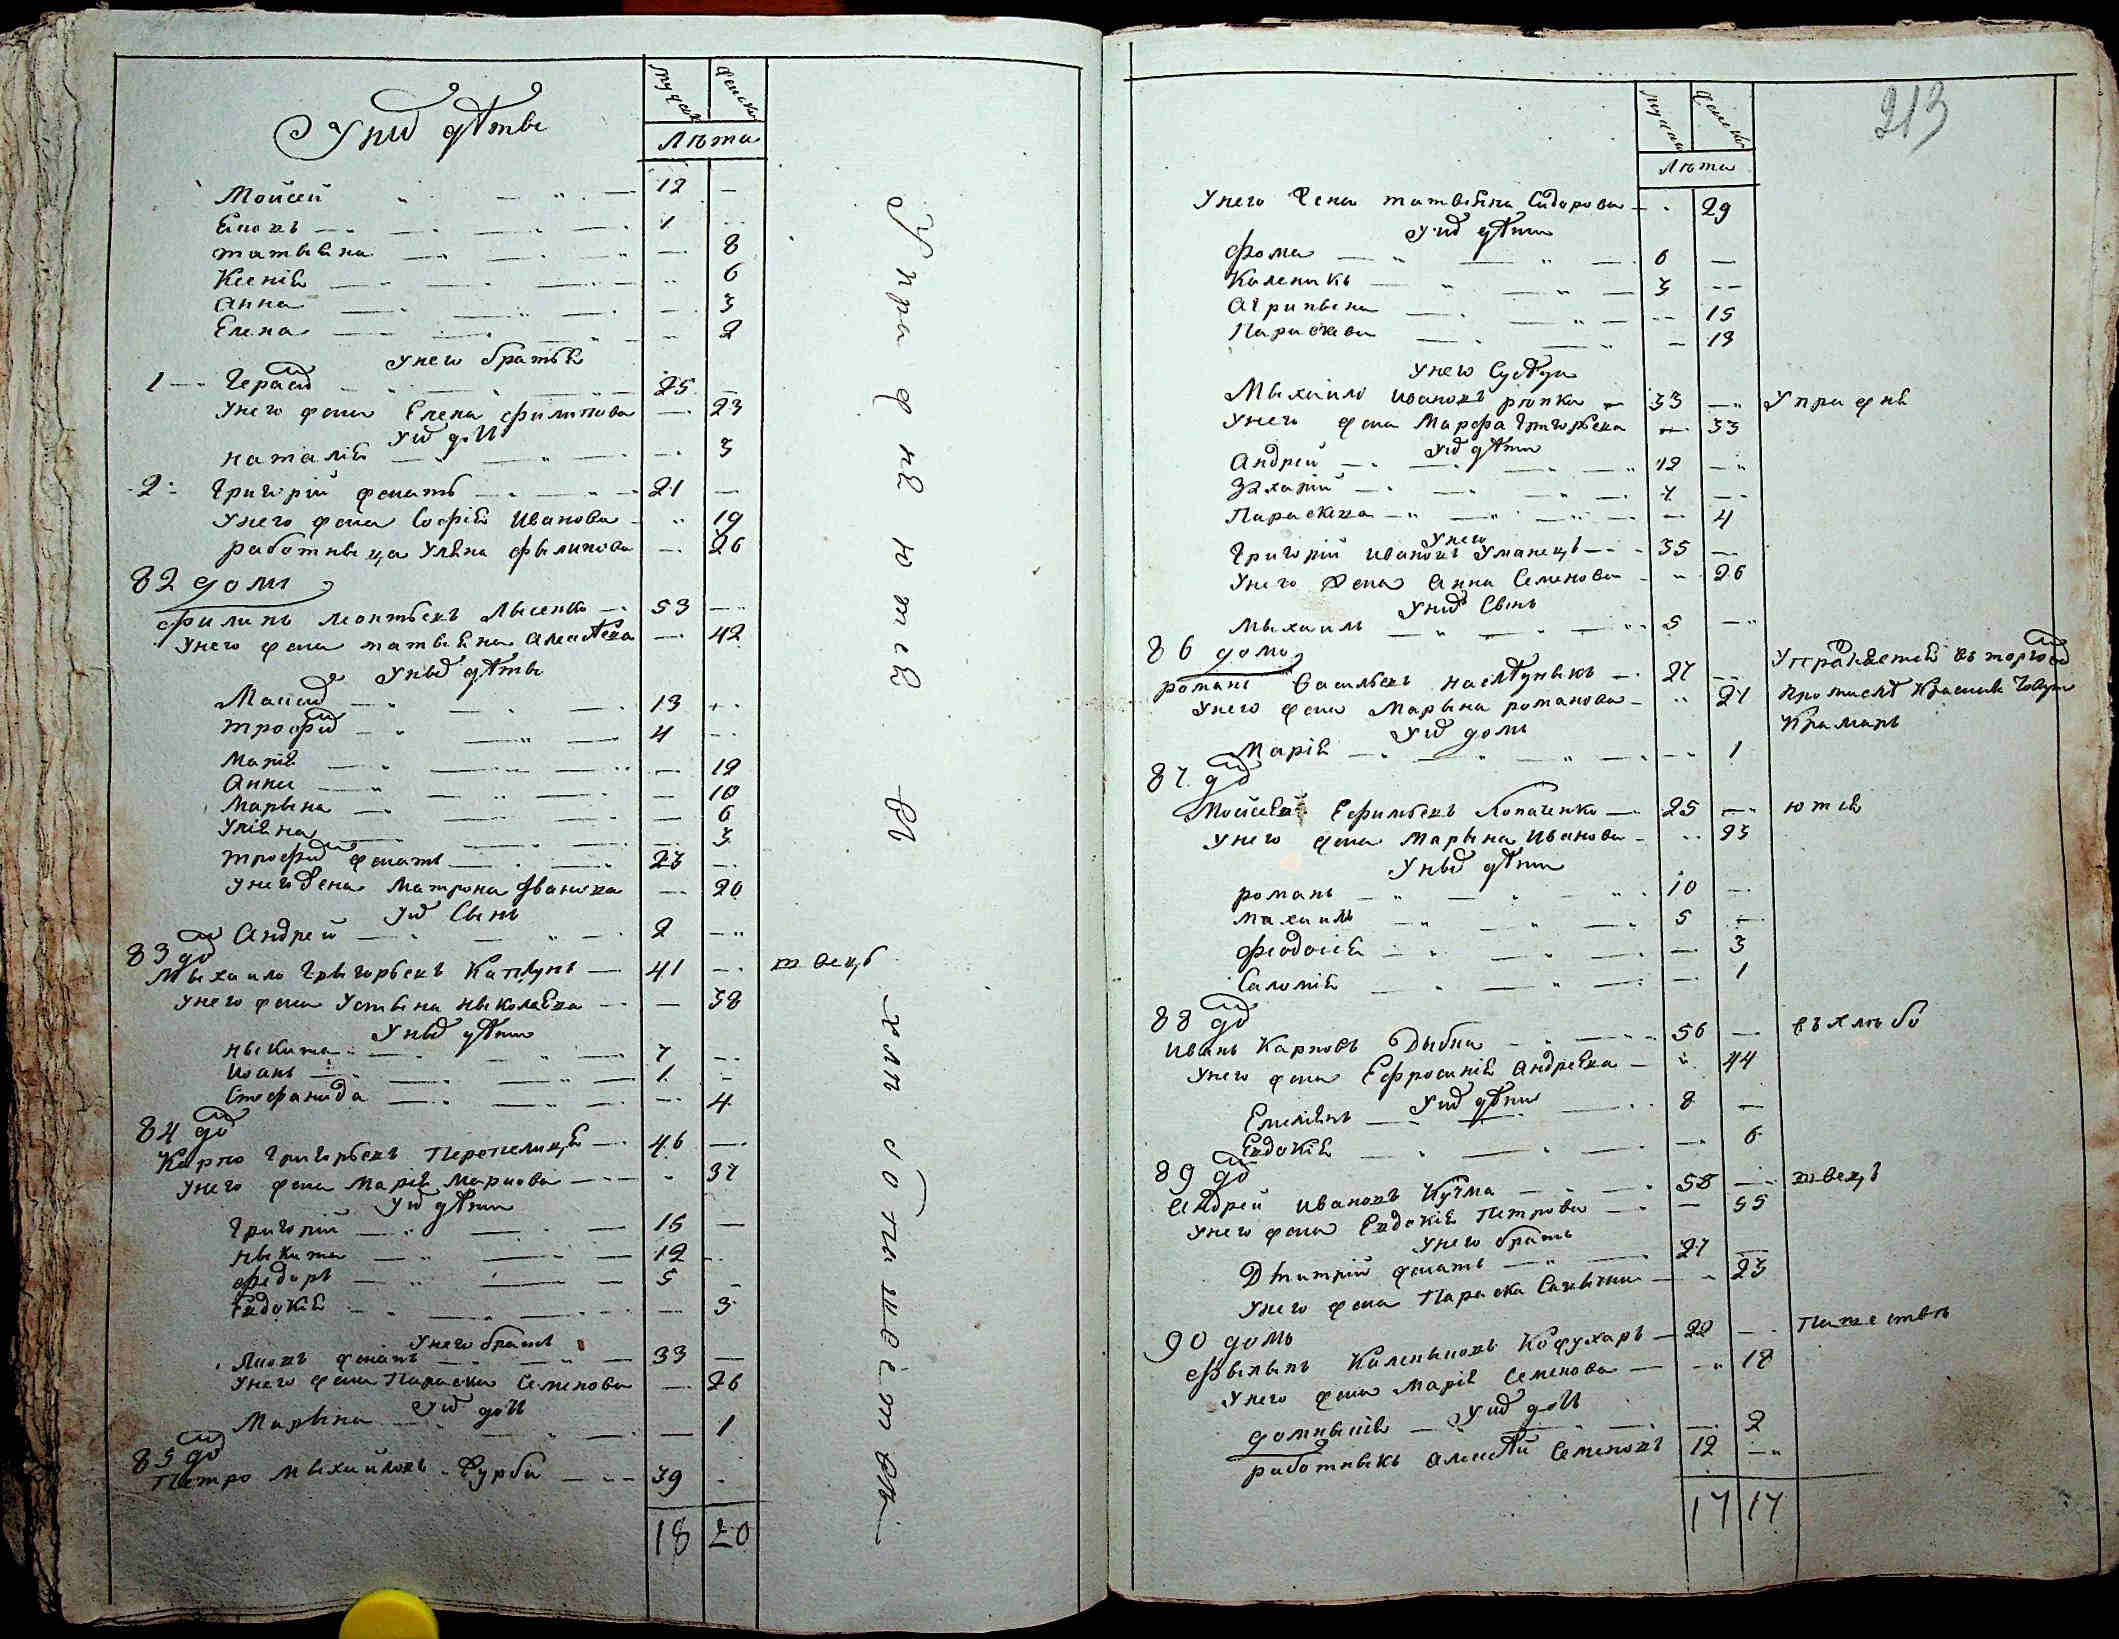 мужеск женск
Лѣта
У них дѣти
Мойсей 12 —
Евсей 1 —
татьяна — 8
Ксенія — 6
Анна — 3
Елена — 2
У него братья
1 — Герасим 25 —
У него жена Елена филипова — 23
У их дочь
наталія — 3
2 Григорій женатъ 21 —
У него жена Софія Иванова — 19
работныца Уляна филипова — 26
82 домъ
филипъ леонтьевъ Лысенко 53 —
У него жена татьяна Алексѣева — 42
У ных дѣти
Максим 13 —
трофим 4 —
Марія — 12
Анна — 10
Марына — 6
Уляна — 3
трофим женатъ 23 —
У него жена Матрона Иванова — 20
У их Сынъ
Андрей 2 —
83 до
Мыхаило Грыгорьевъ Каплунъ 41 — швецъ
У него жена Устына ныколаева — 38
У ных дѣти
ныкита 7 —
Иванъ 1 —
Стефанида — 4
84 до
Карпо Григорьевъ Перепелиця 46 —
У него жена Марія Маркова — 37
У их дѣти
Григорій 15 —
ныкита 12 —
федоръ 5 —
Евдокія — 3
У него братъ
женатъ 33 —
У него жена Параска Семенова — 26
У их дочь
Марына — 1
85 до
Петро Мыхайловъ 39 —
18 20
Упражняются в хлѣбопашествѣ
213
мужеск женск
Лѣта
У него жена татьяна Сидорова — 29
У их дѣти
фома 6 —
Каленикъ 3 —
Агрипына — 15
Параскева — 13
У него Сусѣди
Мыхаило Ивановъ рѣпка 33 — Упражня
У него жена Марфа Григорьева — 33
У их дѣти
Андрей 12 —
Захарій 7 —
Параскева — 4
У него
Григорій Ивановъ Уманецъ 35 —
У него жена Анна Семенова — 26
У них Сынъ
Мыхаилъ 5 —
86 домъ
романъ Васильевъ наслѣдныкъ 27 — Упражняется въ торгово
У него жена Марына романова — 21 промислѣ Красним товаром
У их дочь Крамаръ
Марія — 1
87 до
Мойсей Ефимьевъ Лопаченко 25 — ются
У него жена Марына Иванова — 23
У ных дѣти
романъ 10 —
Махаилъ 5 —
феодосія — 3
Саломія — 1
88 до
Иванъ Карповъ Дыбка 56 — въ хлѣбо
У него жена Ефросинія Андреева — 44
У их дѣти
Емеліянъ 8 —
Евдокія — 6
89 до
Андрей Ивановъ Кучма 58 — швецъ
У него жена Евдокія Петрова — 55
У него братъ
Дмитрій женатъ 27 —
У него жена Параска Савычина — 23
90 домъ
фылыпъ Каленыковъ Кожухаръ 22 — пашествѣ
У него жена Марія Семенова — 18
У их дочь
домныкія — 2
работныкъ Алексѣй Семеновъ 12 —
17 17